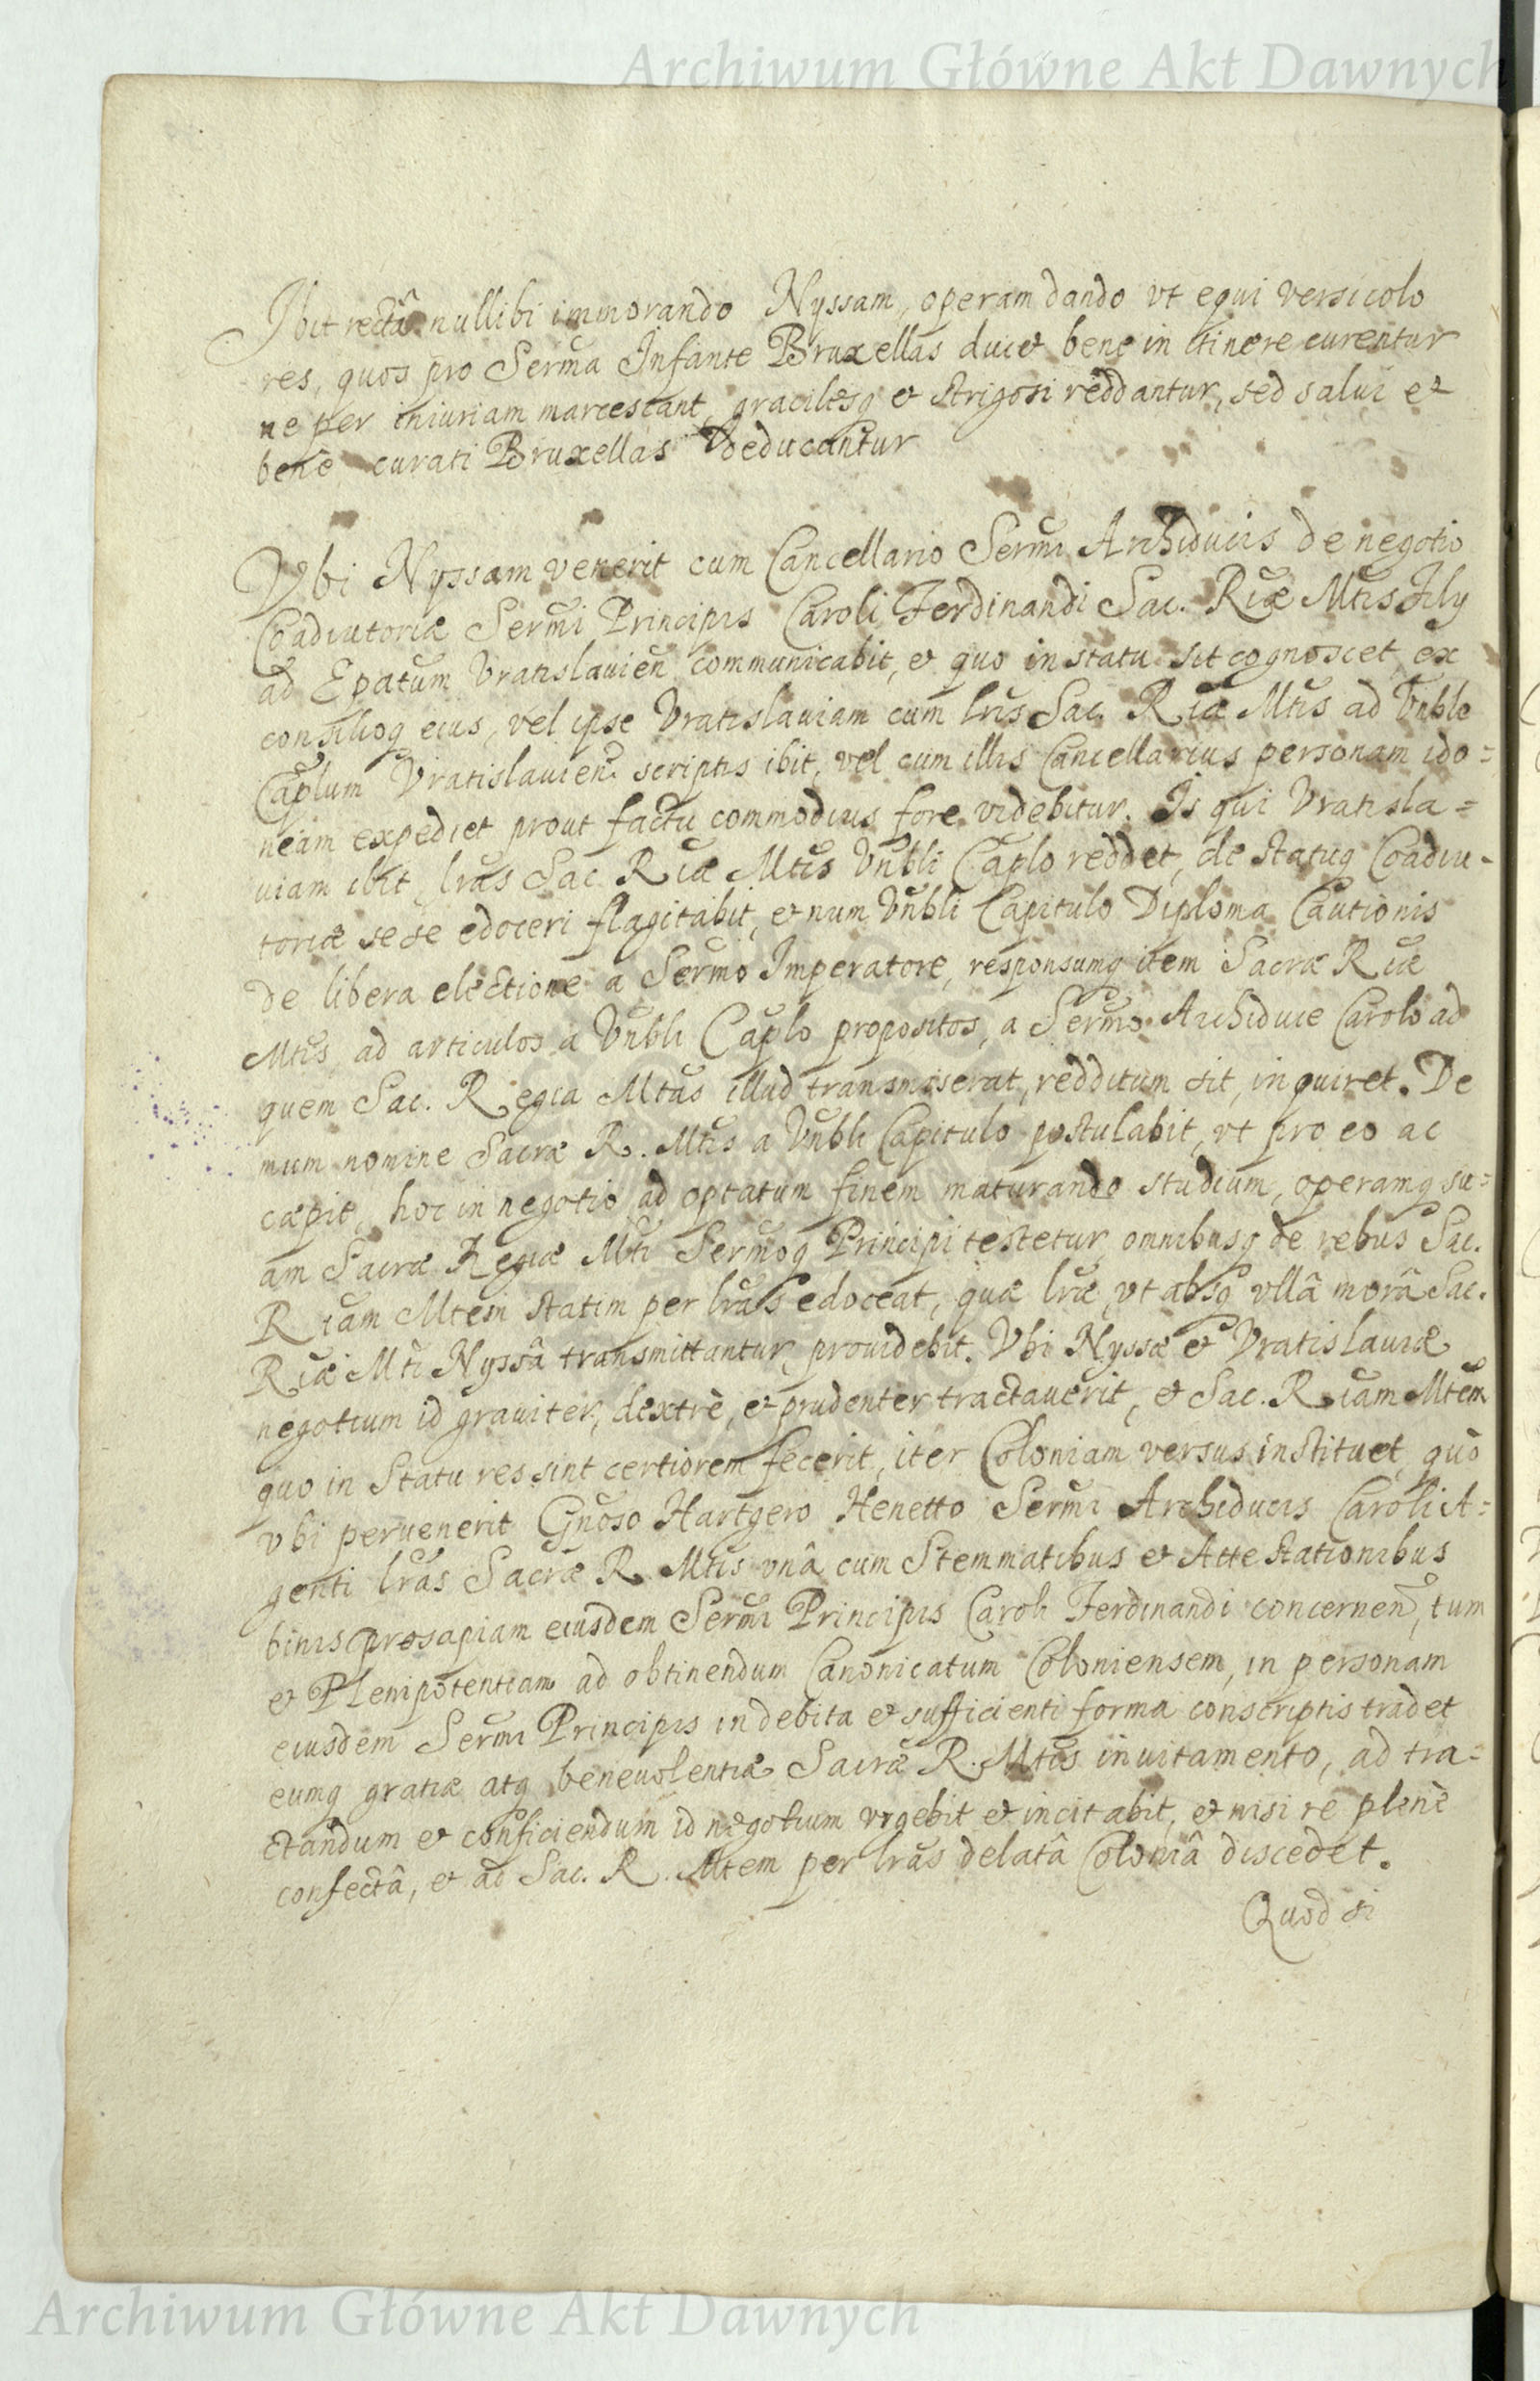 Archiwum Główne Akt Dawnych
Ibit rectâ nullibi immorando Nyssam, operam dando vt equi versicolo
res, quos pro Serma Infante Bruxellas ducet bene in itinere curentur
ne per iniuriam marcescant, gracilesq et strigosi reddantur, sed salui et
bene curati Bruxellas deducantur
Vbi Nyssam venerit cum Cancellario Sermi Archiducis de negotio
Coadiutoriæ Sermi Principis Caroli Ferdinandi Sac. Riæ Mtis Filij
ad Epatum Vratislauien communicabit, et quo in statu sit cognoscet, ex
consilioq eius, vel ipse Vratislauiam cum lris Sac. Riæ Mtis ad Vnble
Caplum Vratislauien scriptis ibit, vel cum illis Cancellarius personam ido=
neam expediet prout factu commodius fore videbitur. Is qui Vratisla=
uiam ibit, lras Sac. Riæ Mtis Vnbli Caplo reddet, de statuq Coadiu-
toriæ sese edoceri flagitabit, et num Vnbli Capitulo Diploma Cautionis
de libera electione a Sermo Imperatore, responsumq item Sacræ Riæ
Mtis, ad articulos a Vnbli Caplo propositos, a Sermo Archiduce Carolo ad
quem Sac. Regia Mtas illud transmiserat, redditum sit, inquiret. De
mum nomine Sacræ R. Mtis a Vnbli Capitulo postulabit, vt pro eo ac
cæpit, hoc in negotio ad optatum finem maturando studium, operamq su=
am Sacræ Regiæ Mti Sermoq Principi testetur omnibusq de rebus Sac.
Riam Mtem statim per lras edoceat, quæ lræ vt absq vllâ morâ Sac.
Riæ Mti Nyssâ transmittantur, prouidebit. Vbi Nyssæ et Vratislauiæ
negotium id grauiter, dextrè, et prudenter tractauerit, et Sac. Riam Mtem
quo in statu res sint certiorem fecerit, iter Coloniam versus instituet, quò
vbi peruenerit Gnoso Hartgero Henetto Sermi Archiducis Caroli A=
genti lras Sacræ R. Mtis vnâ cum Stemmatibus et Attestationibus
binis prosapiam eiusdem Sermi Principis Caroli Ferdinandi concernen, tum
et Plenipotentiam ad obtinendum Canonicatum Coloniensem, in personam
eiusdem Sermi Principis in debita et sufficienti forma conscriptis tradet
eumq gratiæ atq beneuolentiæ Sacræ R. Mtis inuitamento, ad tra=
ctandum et conficiendum id negotium vrgebit et incitabit, et nisi re plenè
confectâ, et ad Sac. R. Mtem per lras delatâ Coloniâ discedet.
Quod si
Archiwum Główne Akt Dawnych